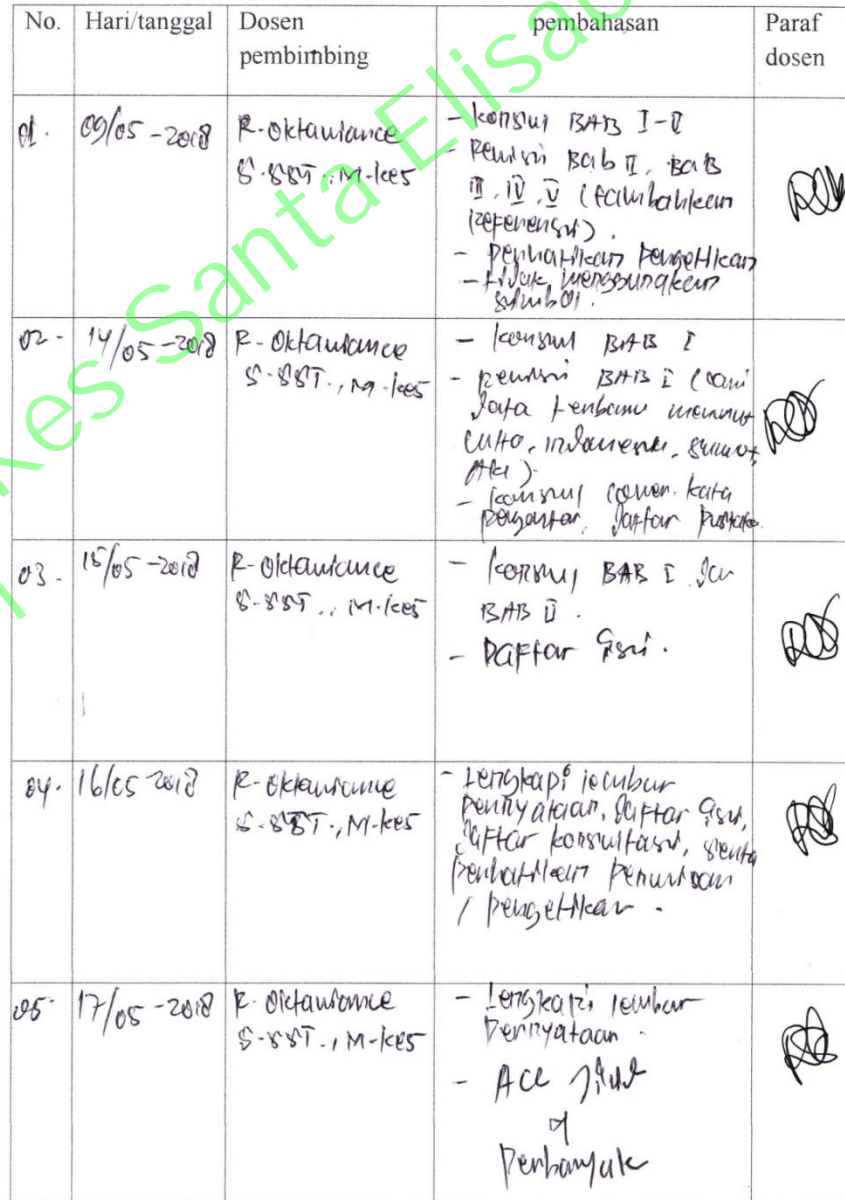 No. Hari/tanggal Dosen pembimbing pembahasan Paraf dosen
01. 09/05-2018 R. Oktaviance S.SST., M.Kes
- Konsul BAB I-V
- Revisi Bab II, BAB
III, IV, V (tambahkan
referensi).
- perhatikan pengetikan
- tidak menggunakan
simbol.
02. 14/05-2018 R. Oktaviance S.SST., M.Kes
- Konsul BAB I
- revisi BAB I (cari
data terbaru menurut
WHO, indonesia, sumut,
AKI).
- konsul cover, kata
pengantar, daftar pustaka.
03. 15/05-2018 R. Oktaviance S.SST., M.Kes
- Konsul BAB I dan
BAB II.
- Daftar isi.
04. 16/05 2018 R. Oktaviance S.SST., M.Kes
- Lengkapi lembar
pernyataan, daftar isi,
daftar konsultasi, serta
perhatikan penulisan
/ pengetikan.
05. 17/05-2018 R. Oktaviance S.SST., M.Kes
- Lengkapi lembar
pernyataan.
- ACC jilid
Perbanyak
Kes Santa Elisa